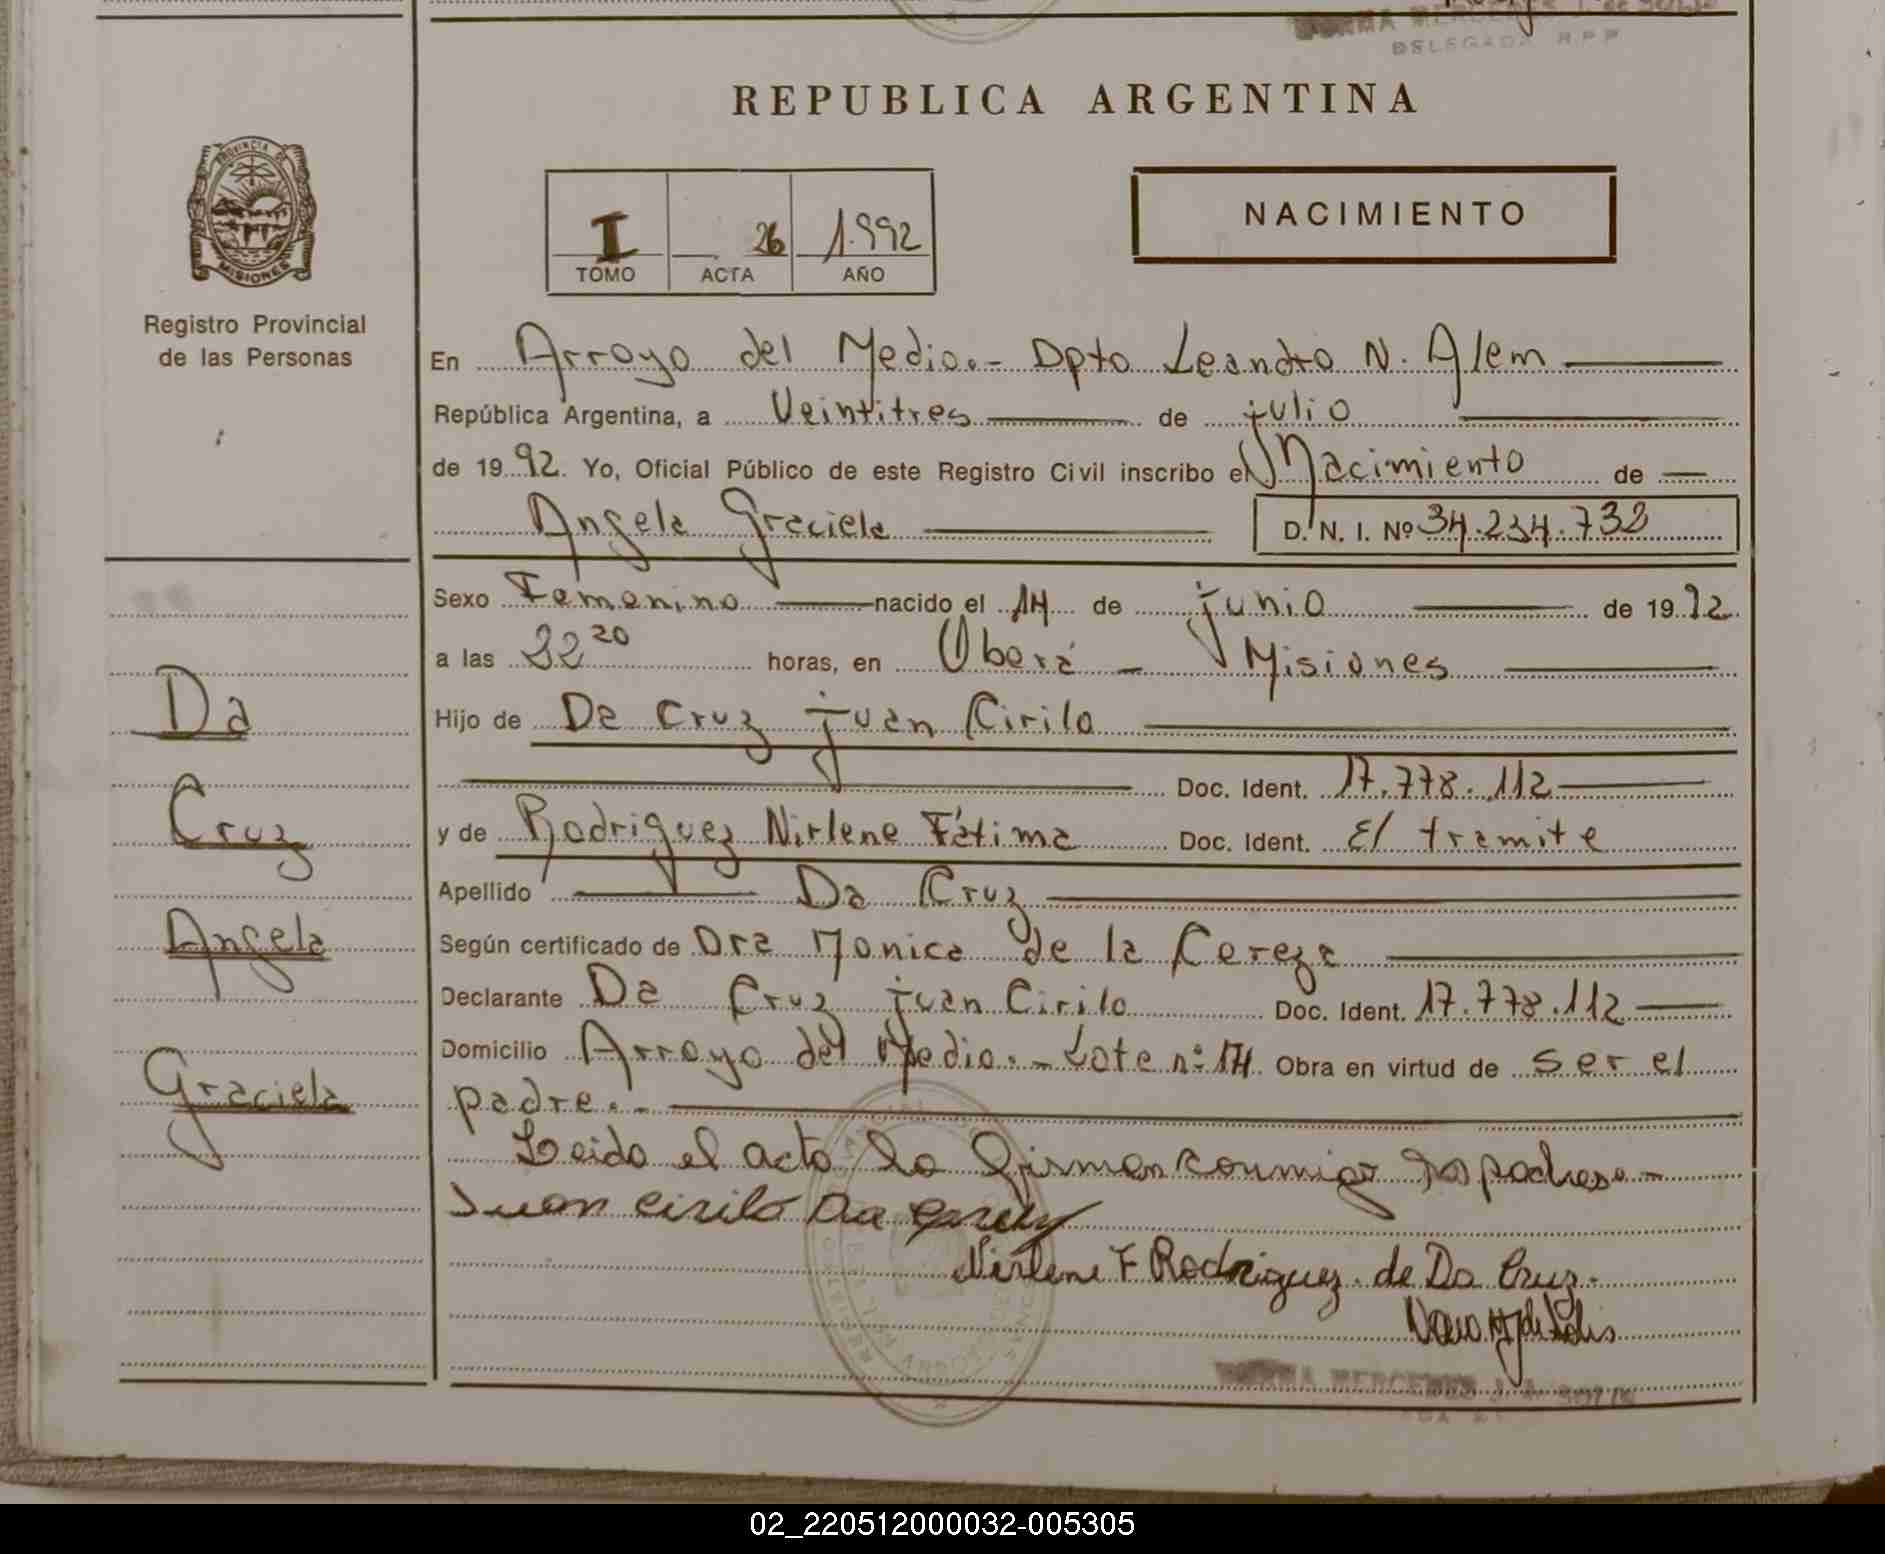 DELEGADA R.P.P
REPUBLICA ARGENTINA
PROVINCIA DE
MISIONES
Registro Provincial
de las Personas
I 26 1.992
TOMO ACTA AÑO
NACIMIENTO
En Arroyo del Medio.- Dpto Leandro N. Alem
República Argentina, a Veintitres de julio
de 1992. Yo, Oficial Público de este Registro Civil inscribo el Nacimiento de
Angela Graciela D. N. I. Nº 34.234.732
Sexo Femenino nacido el 14 de junio de 1992
a las 22 20 horas, en Oberá - Misiones
Hijo de Da Cruz juan Cirilo
Doc. Ident. 17.778.112
y de Rodriguez Nirlene Fátima Doc. Ident. El tramite
Apellido Da Cruz
Según certificado de Dra Monica de la Cereza
Declarante Da Cruz juan Cirilo Doc. Ident. 17.778.112
Domicilio Arroyo del Medio.- Lote nº 14 Obra en virtud de ser el
padre.-
Leida el acta la firman conmigo los padres.-
Juan Cirilo Da Cruz
Nirlene F Rodriguez de Da Cruz.
Da
Cruz
Angela
Graciela
02_220512000032-005305